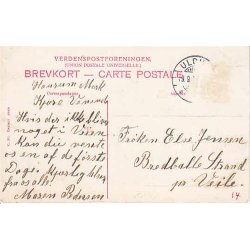 VERDENSPOSTFORENINGEN.
(UNION POSTALE UNIVERSELLE.)
BREVKORT — CARTE POSTALE.
Correspondance
Kjære Veninde
Hvis der ikke bliver
noget i Veien
Kan du vente
os en af de første
Dage. Kjærlig hilsen
fra os alle
Maren Pedersen
Frøken Else Jensen
Bredballe Strand
pr Veile.